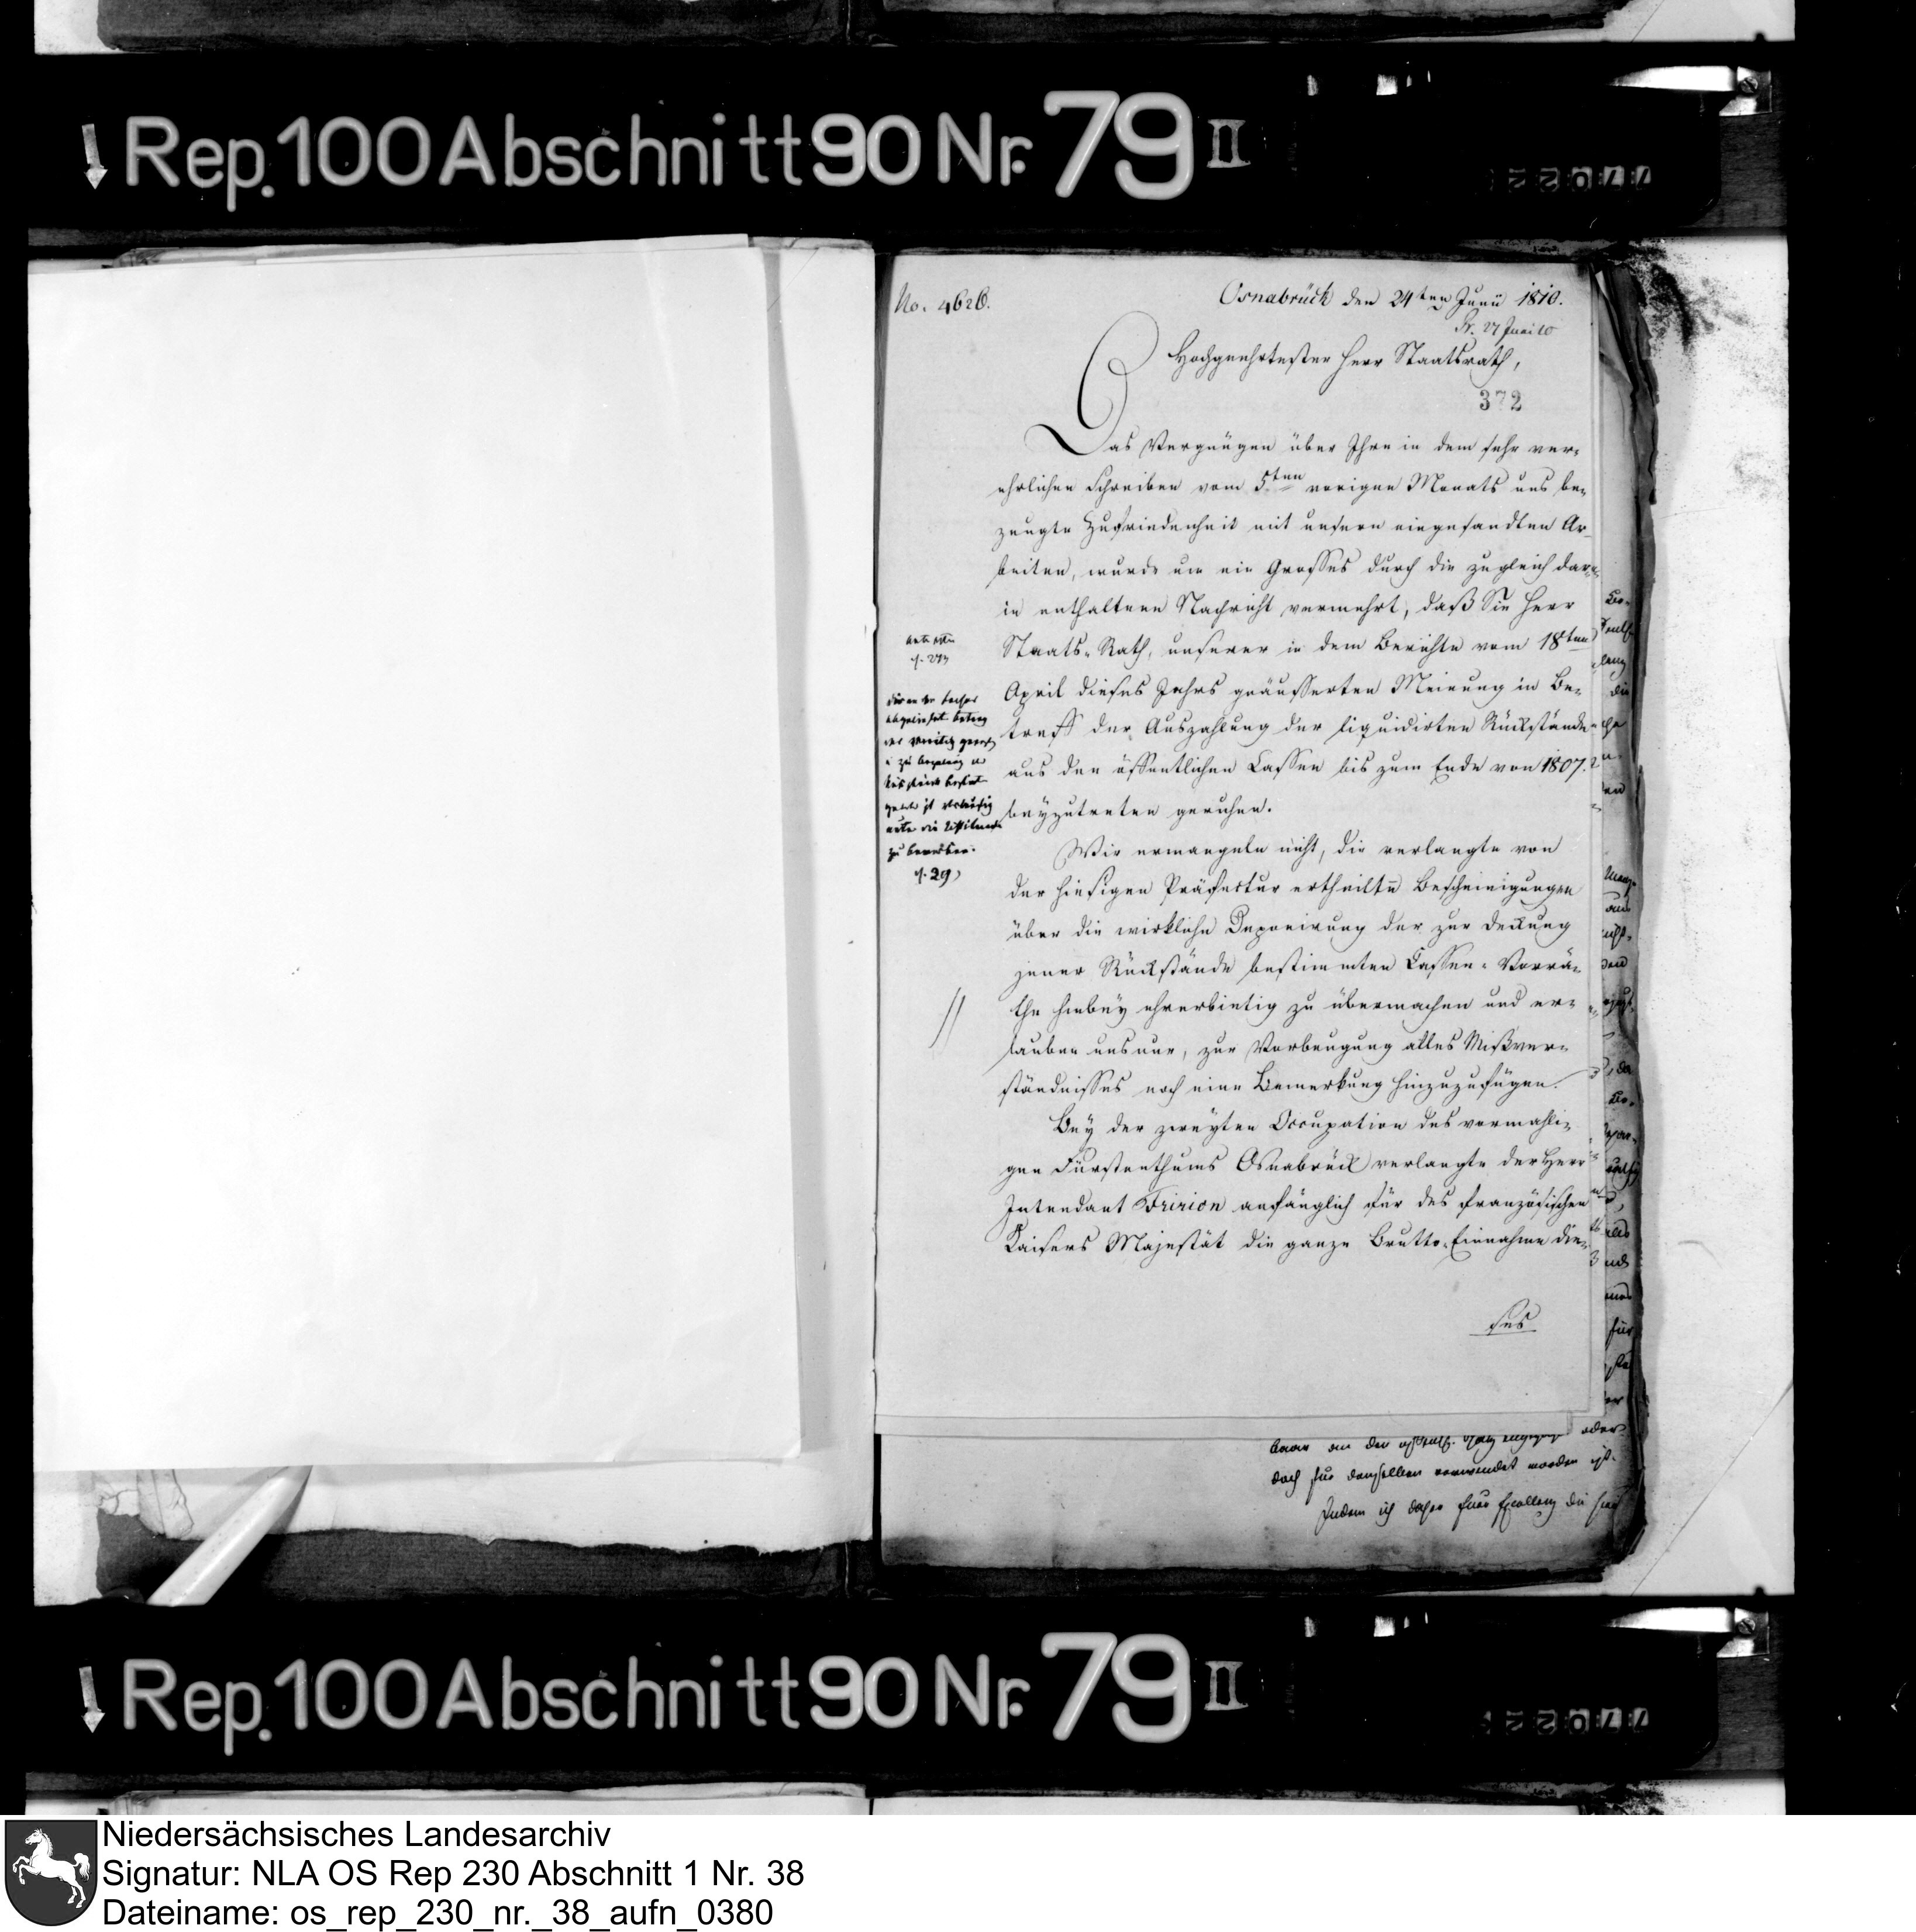 Rep. 100 Abschnitt 90 Nr. 79 II
No. 4626.
Osnabrück den 24ten Junii 1810.
Pr. 27 Juni 10
Hochgeehrtester Herr Staatsrath,
372
Das Vergnügen über Ihre in dem sehr ver-
ehrlichen Schreiben vom 5ten vorigen Monats uns be-
zeugte Zufriedenheit mit unsern eingesandten Ar-
beiten, wurde um ein Grosses durch die zugleich dar-
in enthaltene Nachricht vermehrt, daß Sie Herr
Staats-Rath, unserer in dem Berichte vom 18ten
April dieses Jahrs geäusserten Meinung in Be-
treff der Auszahlung der liquidirten Rückstände
aus den öffentlichen Cassen bis zum Ende von 1807.
beyzutreten geruhen.
zu bemerken.
Wir ermangeln nicht, die verlangte von
der hiesigen Präfectur ertheilte Bescheinigungen
über die wirkliche Deponirung der zur Deckung
jener Rückstände bestimmten Cassen-Vorrä-
the hiebey ehrerbietig zu übermachen und er-
lauben uns nur, zur Vorbeugung alles Mißver-
ständnisses noch eine Bemerkung hinzuzufügen.
Bey der zweyten Occupation des vormahli-
gen Fürstenthums Osnabrück verlangte der Herr
Intendant Fririon anfänglich für des französischen
Kaisers Majestät die ganze Brutto-Einnahme die-
ses
oder
doch für denselben verwendet worden ist.
Indem ich daher Euer Excellenz die
Rep. 100 Abschnitt 90 Nr. 79 II
Niedersächsisches Landesarchiv
Signatur: NLA OS Rep 230 Abschnitt 1 Nr. 38
Dateiname: os_rep_230_nr._38_aufn_0380